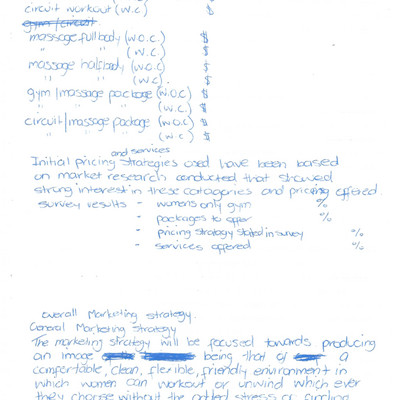 circuit workout (W.C) $
gym/circuit
massage full body (W.O.C.) $
" " " (W.C.) $
massage half body (W.O.C) $
" " (W.C). $
gym/massage package (W.O.C) $
" " (W.C.) $
circuit/massage package (W.O.C) $
" " (W.C) $
and services
Initial pricing strategies used have been based
on market research conducted that showed
strong interest in these catagories and pricing offered
survey results - womens only gym %
- packages to offer %
- pricing strategy stated in survey %
- services offered %
overall Marketing strategy.
General Marketing Strategy
The marketing strategy will be focused towards producing
an image being that of a
comfortable, clean, flexible, friendly environment in
which women can workout or unwind which ever
they choose without the added stress or finding